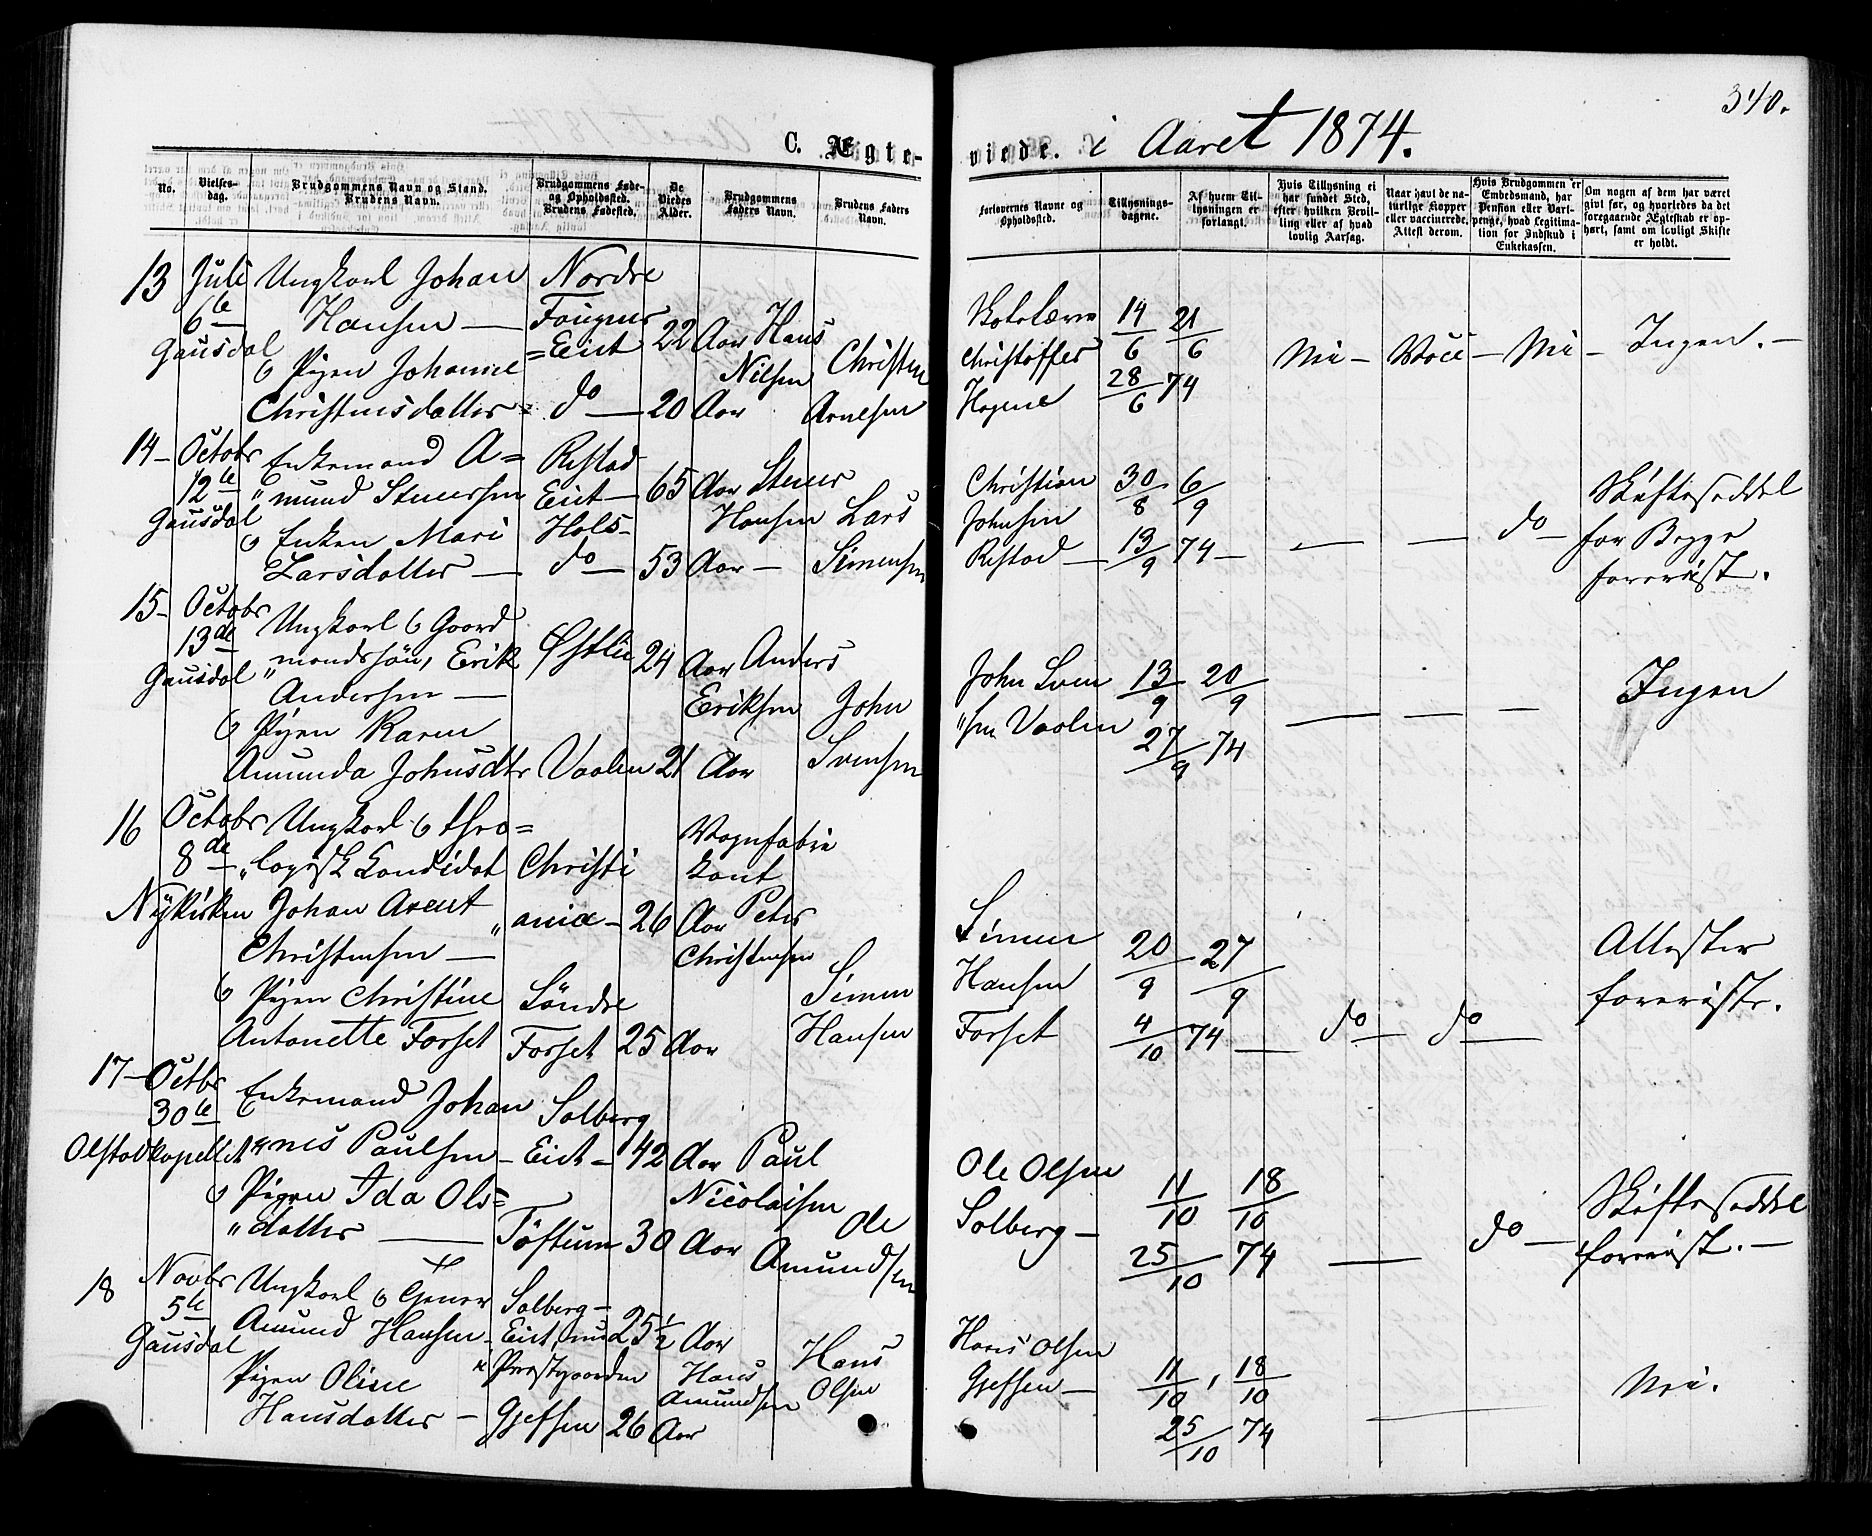 340.
C. Ægte-
viede. i Aaret 1874.
No.
Vielses-
dag.
Brudgommens Navn og Stand.
Brudens Navn.
Brudgommens Føde-
og Opholdssted.
Brudens Fødested.
De
Viedes
Alder.
Brudgommens
Faders Navn.
Brudens Faders
Navn.
Forlovernes Navne og
Opholdssted.
Tillysnings-
dagene.
Af hvem Til-
lysningen er
forlangt.
Hvis Tillysning ei
har fundet Sted,
efter hvilken Bevil-
ling eller af hvad
lovlig Aarsag.
Naar havt de na-
turlige Kopper
eller vaccinerede,
Attest derom.
Hvis Brudgommen er
Embedsmand, har
Pension eller Vart-
penge, hvad Legitima-
tion for Indskud i
Enkekassen.
Om nogen af dem har været
givt før, og hvorledes da det
foregaaende Ægteskab er op-
hørt, samt om lovligt Skifte
er holdt.
13 Juli Ungkarl Johan Nordre
6te Hansen — Fougner
Gausdal =Eiet 22 Aar Hans
Nilsen
& Pigen Johanne
Christensdatter = do — 20 Aar Christen
Arnesen
Christoffer
14/6 21/6
28/6 74
Nei — — Nei — Ingen. —
14 — Octobr Enkemand A=
12te „mund Steensen
Gausdal
Eiet — 65 Aar
Hansen
& Enken Mari
Larsdatter — do — 53 Aar — Lars
Simensen
Christian
Johnsen
30/8 6/9
13/9 74 —
— — do — Skifteseddel
for Begge
forevist.
15 — Octobr Ungkarl & Gaard
13de „mandssøn, Erik Østlie 24 Aar Anders
Gausdal Andersen —
Eriksen
& Pigen Karen
Amunda Johnsdtr Vaalen 21 Aar John
Svensen
John Sven
„sen Vaalen
13/9 20/9
27/9 74
— — — Ingen
16 Octobr Ungkarl & theo=
8de „logisk Candidat Christi
Vognfabri
kant
Nykirken Johan Arent „ania — 26 Aar Peter
Christensen — Christensen
& Pigen Christine Søndre
Antonette Forset Forset 25 Aar Simen
Hansen
Simen
Hansen
Forset
20/9 27/9
4/10 74 — do — do —
Attester
foreviste.
17 — Octbr Enkemand Johan Solberg
30te „nes Paulsen — Eiet — 42 Aar Paul
Olstadkapellet Nicolaisen
& Pigen Ida Ols=
„datter — Tøftum 30 Aar Ole
Amundsen
Ole Olsen
Solberg —
11/10 18/10
25/10 74
— do — Skifteseddel
forevist. —
18 Novbr Ungkarl & Solberg —
5te Amund Hansen Eiet, nu 25½ Aar
Gausdal Præstgaarden Hans
Amundsen
Pigen Oline
Hansdatter — Gjefsen 26 Aar Hans
Olsen
Hans Olsen
Gjefsen —
11/10, 18/10
25/10 74
— Nei.